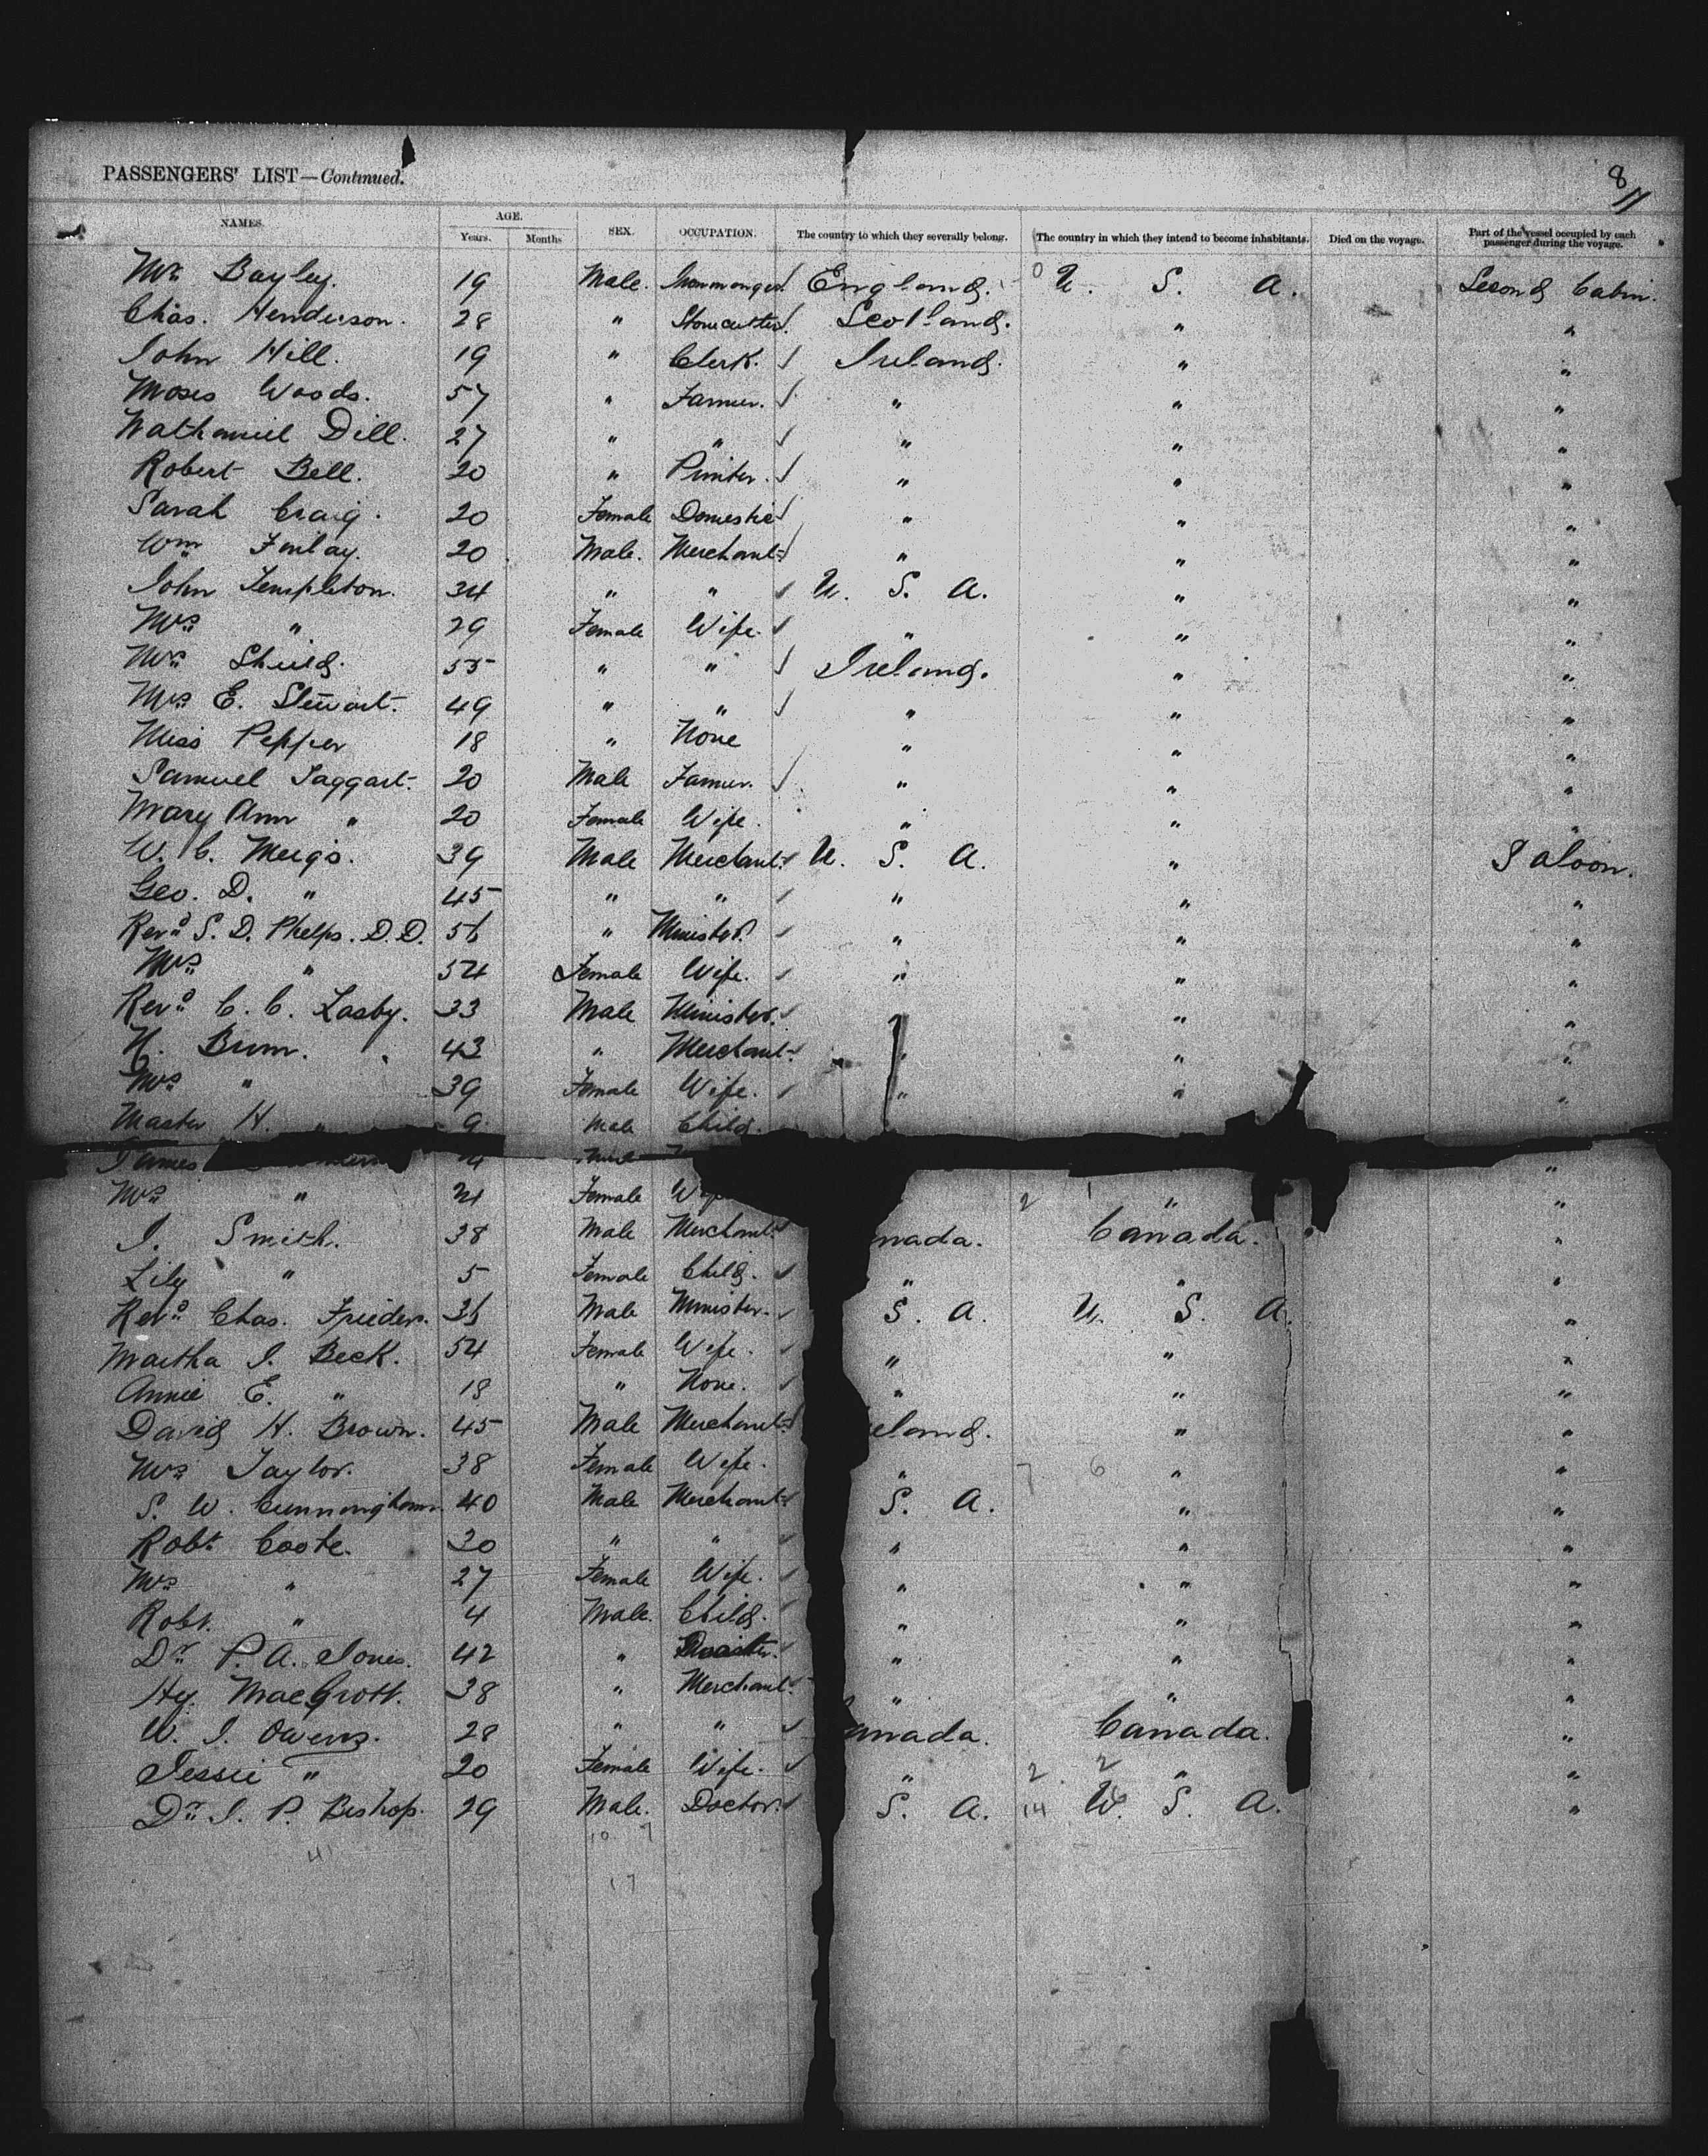 8/11
PASSENGERS' LIST—Continued.
NAMES. AGE. Years. Months SEX. OCCUPATION. The country to which they severally belong. The country in which they intend to become inhabitants. Died on the voyage. Part of the vessel occupied by each passenger during the voyage.
Mr. Bayley. 19 Male. Ironmonger. England. 0 U. S. A. Second Cabin.
Chas. Henderson. 28 " Stonecutter. Scotland. " "
John Hill. 19 " Clerk. Ireland. " "
Moses Woods. 57 " Farmer. " " "
Nathaniel Dill. 27 " " " " "
Robert Bell. 20 " Printer. " " "
Sarah Craig. 20 Female Domestic " " "
Wm Finlay. 20 Male. Merchant " " "
John Templeton. 34 " " U. S. A. " "
Mrs " 29 Female Wife. " " "
Mrs Shield. 55 " " Ireland. " "
Mrs E. Stewart. 49 " " " " "
Miss Pepper 18 " None " " "
Samuel Taggart. 20 Male Farmer. " " "
Mary Ann " 20 Female Wife. " " "
W. C. Meigs. 39 Male Merchant. U. S. A. " Saloon.
Geo. D. " 45 " " " " "
Revd S. D. Phelps. D. D. 56 " Minister. " " "
Mrs " 54 Female Wife. " " "
Revd C. C. Lasby. 33 Male Minister. " " "
43 " Merchant. " " "
Mrs " 39 Female Wife. " " "
Master H. " 9 Male Child.
James "
Mrs " 24 Female 2 1 " "
J. Smith. 38 Male Merchant. nada. Canada. "
Lily " 5 Female Child. " " "
Revd Chas. 36 Male Minister. S. A. U. S. A. "
Martha J. Beck. 54 Female Wife. " " "
Annie E. " 18 " None. " " "
David H. Brown. 45 Male Merchant eland. " "
Mrs Taylor. 38 Female Wife. " 7 6 " "
S. W. Cunningham. 40 Male Merchant S. A. " "
Robt. Coote. 30 " " " " "
Mrs " 27 Female Wife. " " "
Robt. " 4 Male. Child. " " "
Dr. P. A. Jones. 42 " Doctor. " " "
Hy. MacGrott. 38 " Merchant. " " "
W. J. Owens. 28 " " anada. Canada. "
Jessie " 20 Female Wife. " 2 2 " "
Dr. J. P. Bishop. 29 Male. Doctor. S. A. 14 U. S. A. "
41 10 7
17